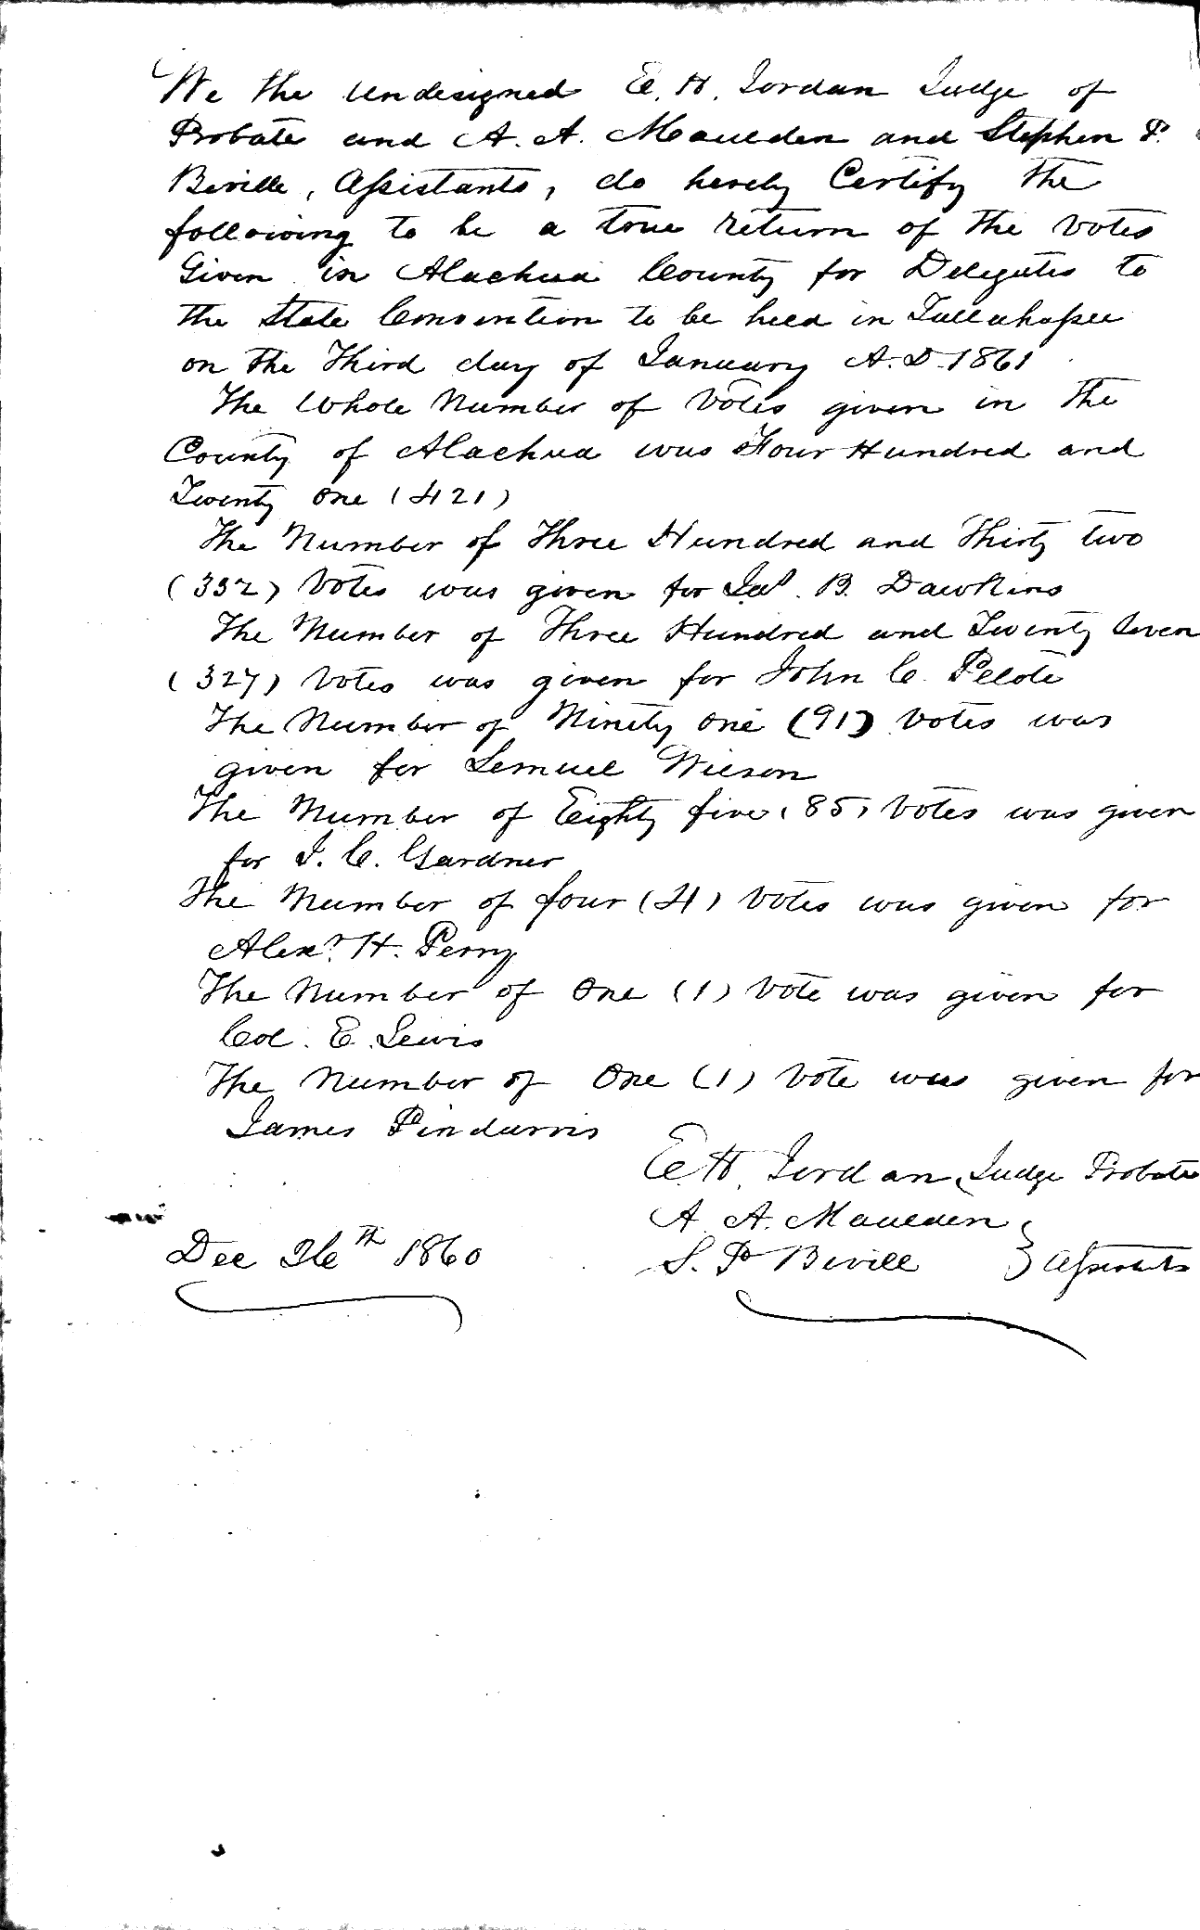 We the undesigned E. H. Jordan Judge of
Probate and A. A. Maulden and Stephen P.
Beville, Assistants, do hereby Certify the
following to be a true return of the votes
Given in Alachua County for Delegates to
the State Convention to be held in Tallahassee
on the Third day of January A.D. 1861
The Whole Number of Votes given in the
County of Alachua was Four Hundred and
Twenty One (421)
The Number of Three Hundred and Thirty two
(332) Votes was given for Jas. B. Dawkins
The Number of Three Hundred and Twenty Seven
(327) Votes was given for John C. Pelote
The Number of Ninety One (91) Votes was
given for Lemuel Wilson
The Number of Eighty five (85) Votes was given
for J. C. Gardner
The Number of four (4) Votes was given for
Alexr. H. Perry
The Number of One (1) Vote was given for
Col. E. Lewis
The Number of One (1) Vote was given for
James Pindarvis
E. H. Jordan, Judge Probate
A. A. Maulden
Dec 26th 1860
S. P. Bevill } Assistants